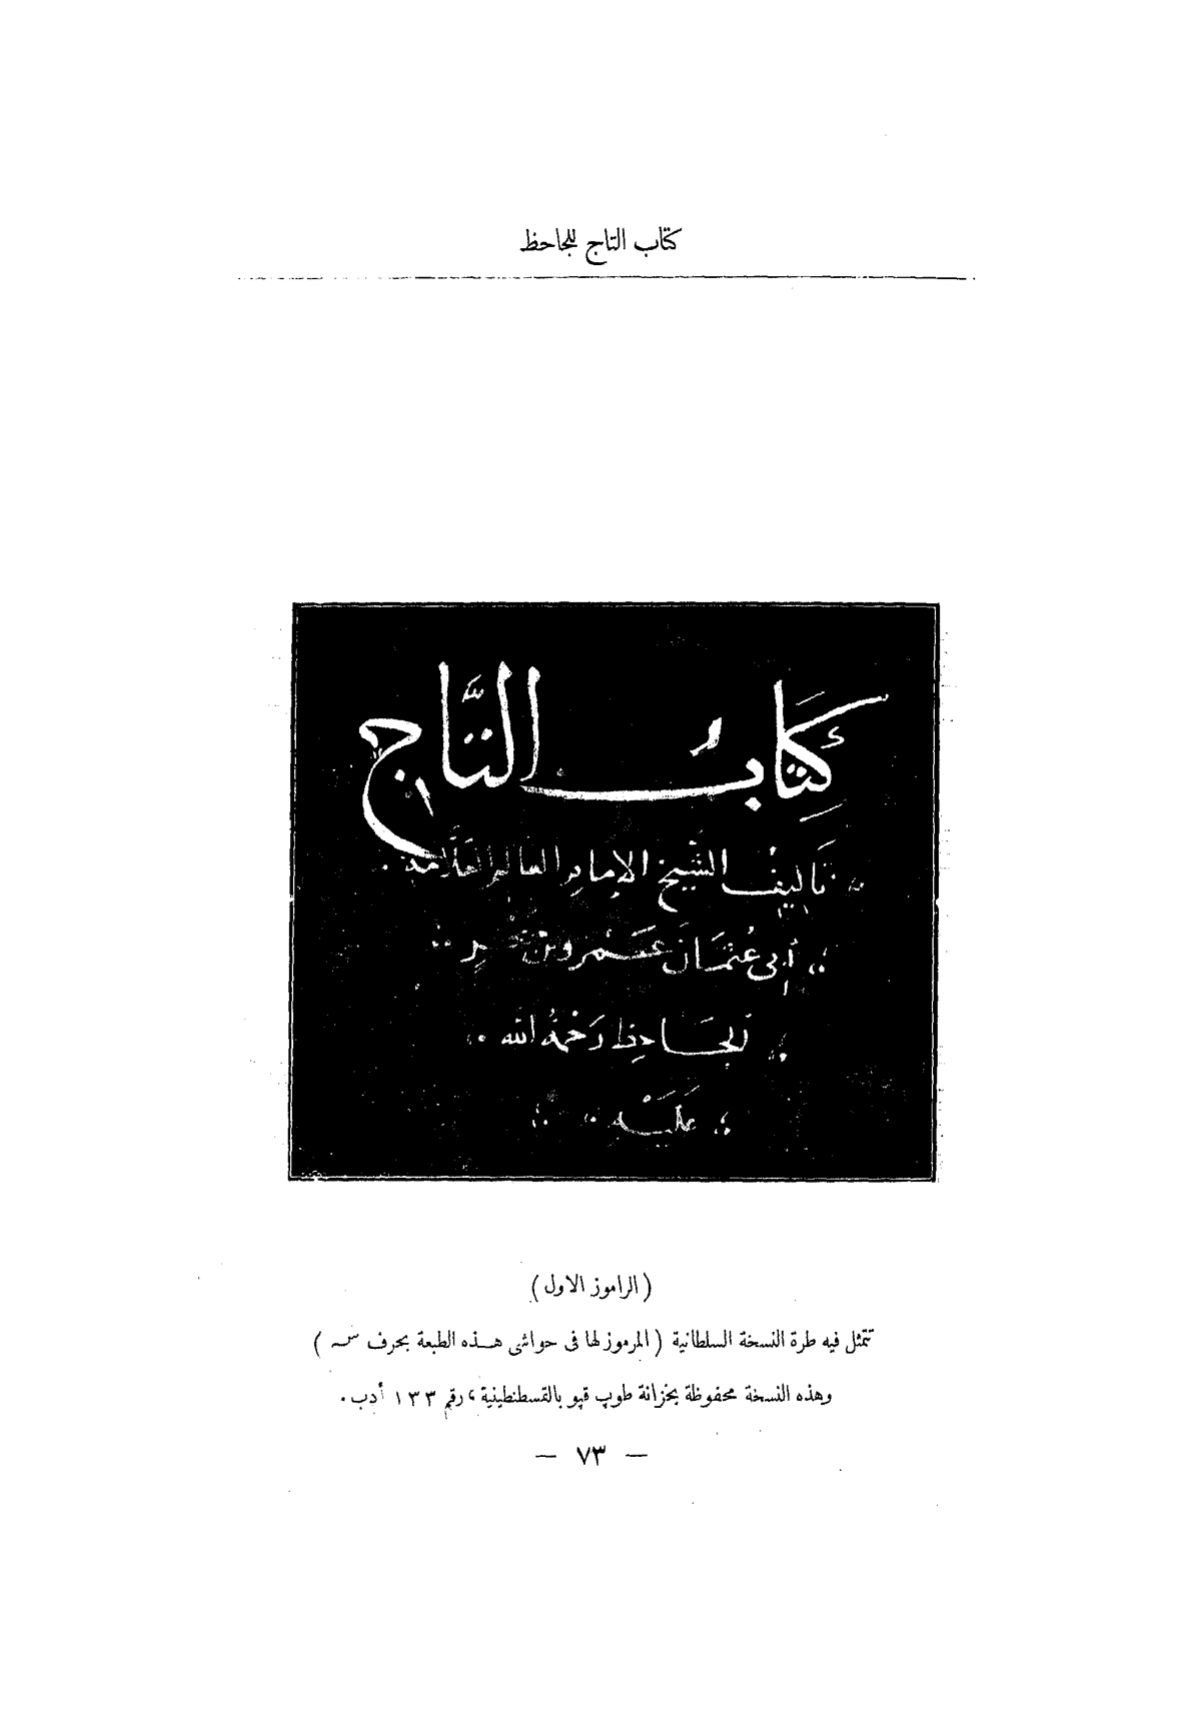 كتاب التاج للجاحظ
كِتَابُ التَّاجِ
تأليف الشيخ الإمام العالم العلامة
أبي عُثمَانَ عَمْرو بن
الجَاحِظ رَحمَةُ الله
عَلَيْه
(الراموز الاول)
تتمثل فيه طرة النسخة السلطانية (المرموز لها فى حواشى هـذه الطبعة بحرف سـ)
وهذه النسخة محفوظة بخزانة طوپ قپو بالقسطنطينية، رقم ١٣٣ أدب.
— ٧٣ —